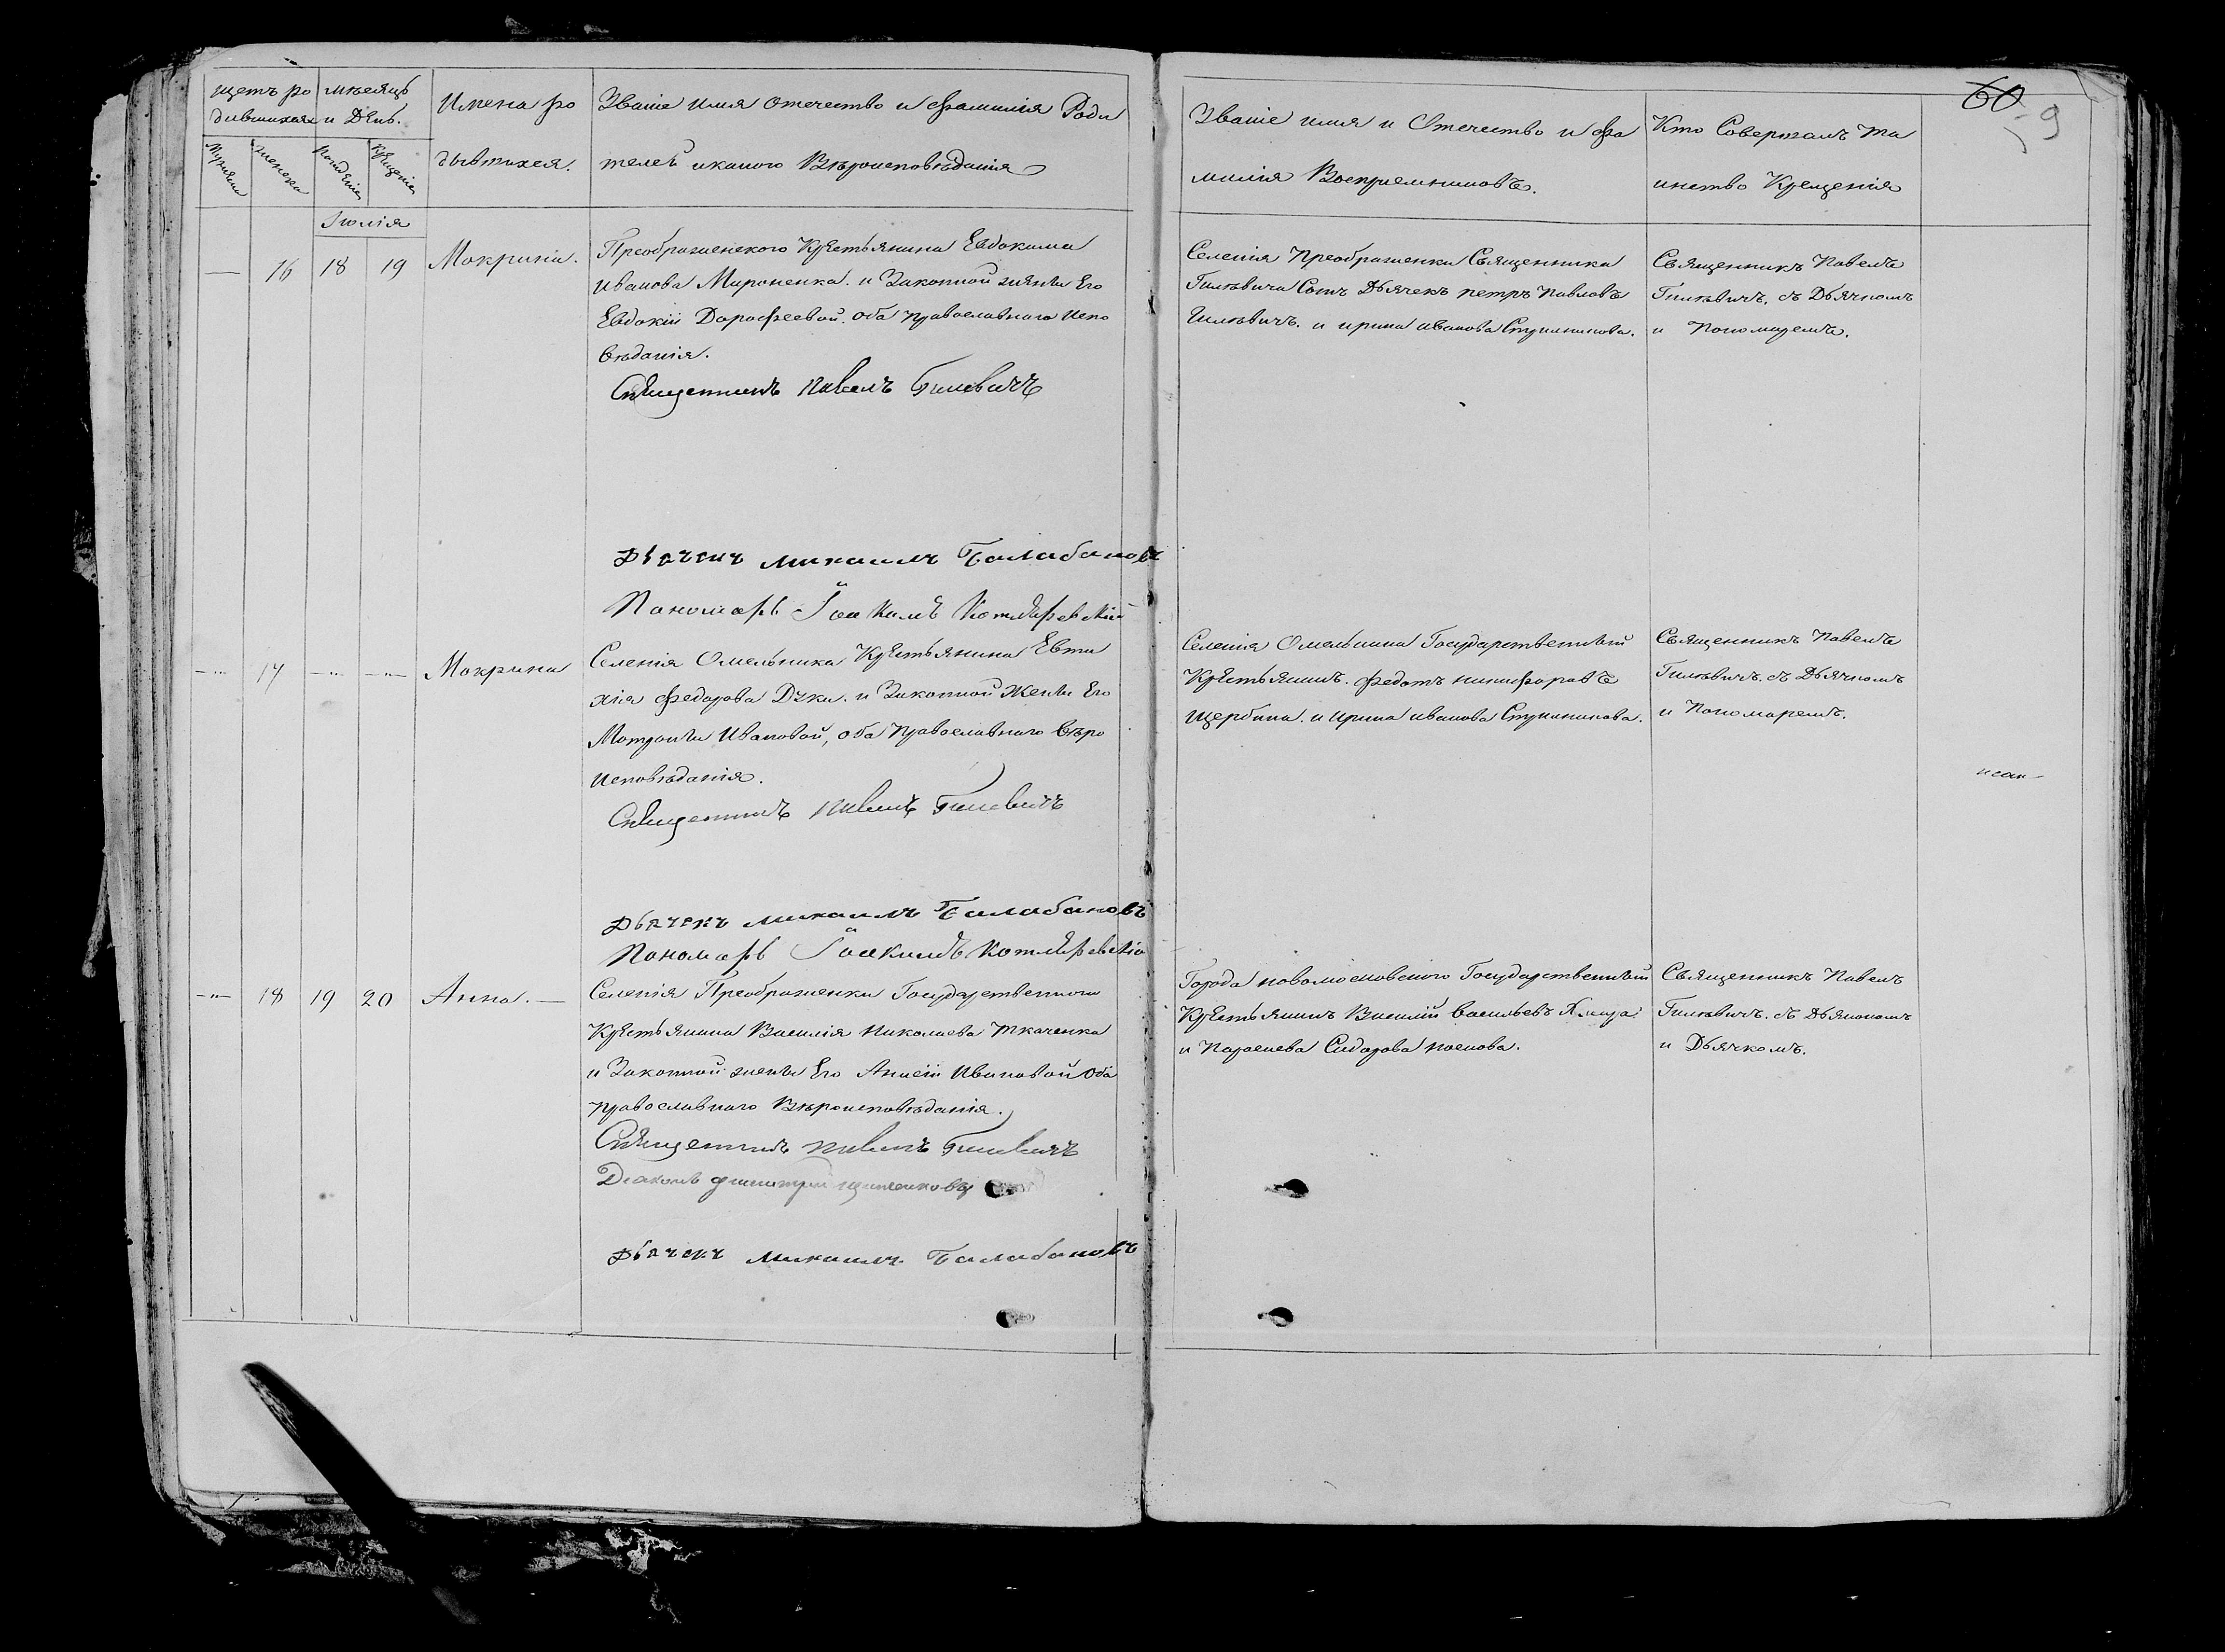 щетъ ро
дившихся
мѣсяцъ
и День.
Имена ро
дывшихся.
Званіе имя отечество и фамилія Роди
телей и какого Вѣроисповѣданія
Званіе имя и Отечество и фа
милія Воспріемниковъ.
Кто Совершалъ та
инство Крещенія
60
9
Мужеска
женска
рожденія
Крещенія
Іюлія
— 16 18 19 Мокрина.
Преображенского Крестьянина Евдокима
Иванова Мироненка. и Законной жены Его
Евдокіи Дорофеевой. оба православного Испо
вѣданія.
Священникъ Павелъ Гилевичъ
Дьячекъ Михаилъ Балабановъ
Пономарь Іоакимъ Котляревскій
Селенія Преображенки Священника
Гилѣвича Сынъ Дьячекъ петръ Павловъ
Гилѣвичъ. и ирина иванова
Священникъ Павелъ
Гилѣвичъ, съ Дьячкомъ
и Пономаремъ.
17 Мокрина
Селенія Омельника Крестьянина Евти
хія Федорова Дуки. и Законной Жены Его
Мотроны Ивановой, оба Православного Вѣро
исповѣданія.
Священникъ Павелъ Гилевичъ
Дьячекъ Михаилъ Балабановъ
Пономарь Іоакимъ Котляревскій
Селенія Омельника Государственный
Крестьянинъ. Федотъ никифоровъ
Щербина. и ирина иванова
Священникъ Павелъ
Гилѣвичъ. съ Дьячкомъ
и Пономаремъ.
18 19 20 Анна. —
Селенія Преображенки Государственного
Крестьянина Василія Николаева Ткаченка
и Законной жены Его Анисіи Ивановой Оба
православного Вѣроисповѣданія.
Священникъ Павелъ Гилевичъ
Діаконъ Димитрій
Дьячекъ Михаилъ Балабановъ
Города новомосковского Государственный
Крестьянинъ Василій васильевъ
и Параскева Сидорова
Священникъ Павелъ
Гилѣвичъ. съ Дьякономъ
и Дьячкомъ.